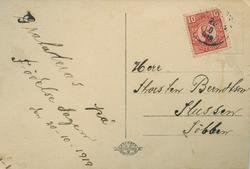 Gratuleras på
Födelse dagen
den 20-10 1919
Herr
Thorsten Berndtson
Slussen
Jobben
10 10